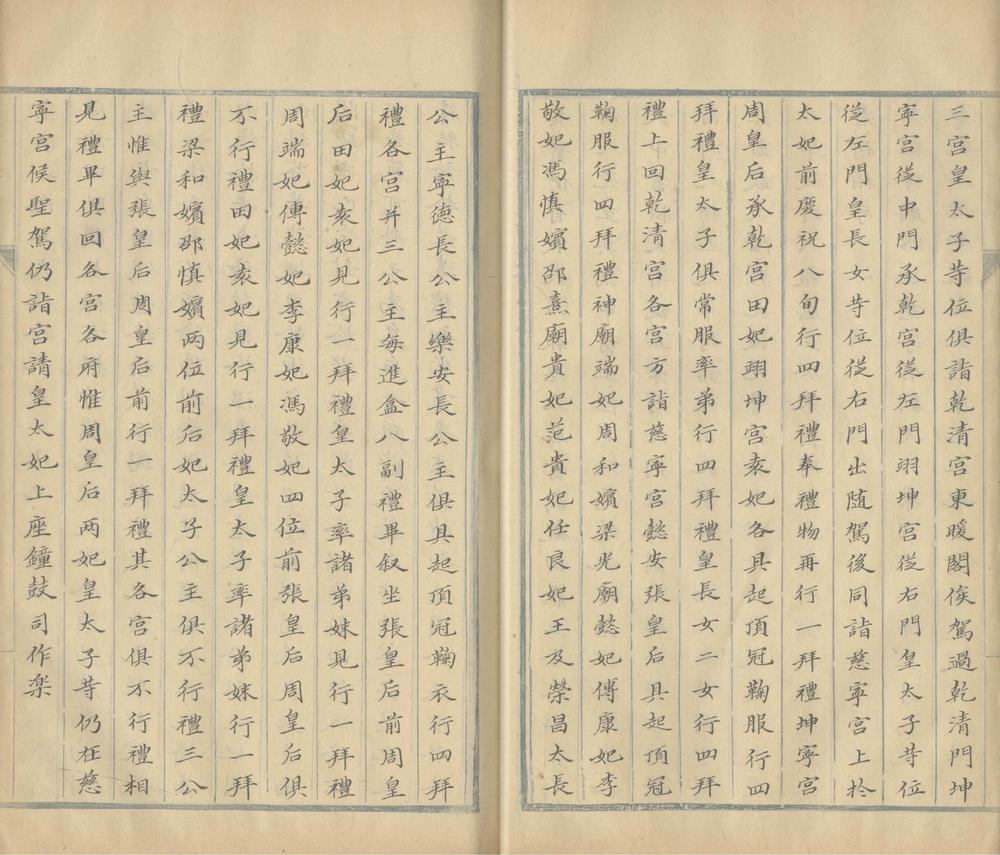 三宮皇太子等位俱詣乾清宮東暖閣俟駕過乾清門坤
寧宮從中門承乾宮從左門翊坤宮從右門皇太子等位
從左門皇長女等位從右門出随駕後同詣慈寧宮上於
太妃前慶祝八旬行四拜禮奉禮物再行一拜禮坤寧宮
周皇后承乾宮田妃翊坤宮袁妃各具起頂冠鞠服行四
拜禮皇太子俱常服率弟行四拜禮皇長女二女行四拜
禮上回乾清宮各宮方詣慈寧宮懿安張皇后具起頂冠
鞠服行四拜禮神廟端妃周和嬪梁光廟懿妃傅康妃李
敬妃馮慎嬪邵熹廟貴妃范貴妃任良妃王及榮昌太長
公主寧德長公主樂安長公主俱具起頂冠鞠衣行四拜
禮各宮并三公主每進盒八副禮畢叙坐張皇后前周皇
后田妃袁妃見行一拜禮皇太子率諸弟妹見行一拜禮
周端妃傅懿妃李康妃馮敬妃四位前張皇后周皇后俱
不行禮田妃袁妃見行一拜禮皇太子率諸弟妹行一拜
禮梁和嬪邵慎嬪两位前后妃太子公主俱不行禮三公
主惟與張皇后周皇后前行一拜禮其各宮俱不行禮相
見禮畢俱回各宮各府惟周皇后两妃皇太子等仍在慈
寧宮候聖駕仍詣宮請皇太妃上座鐘鼓司作楽